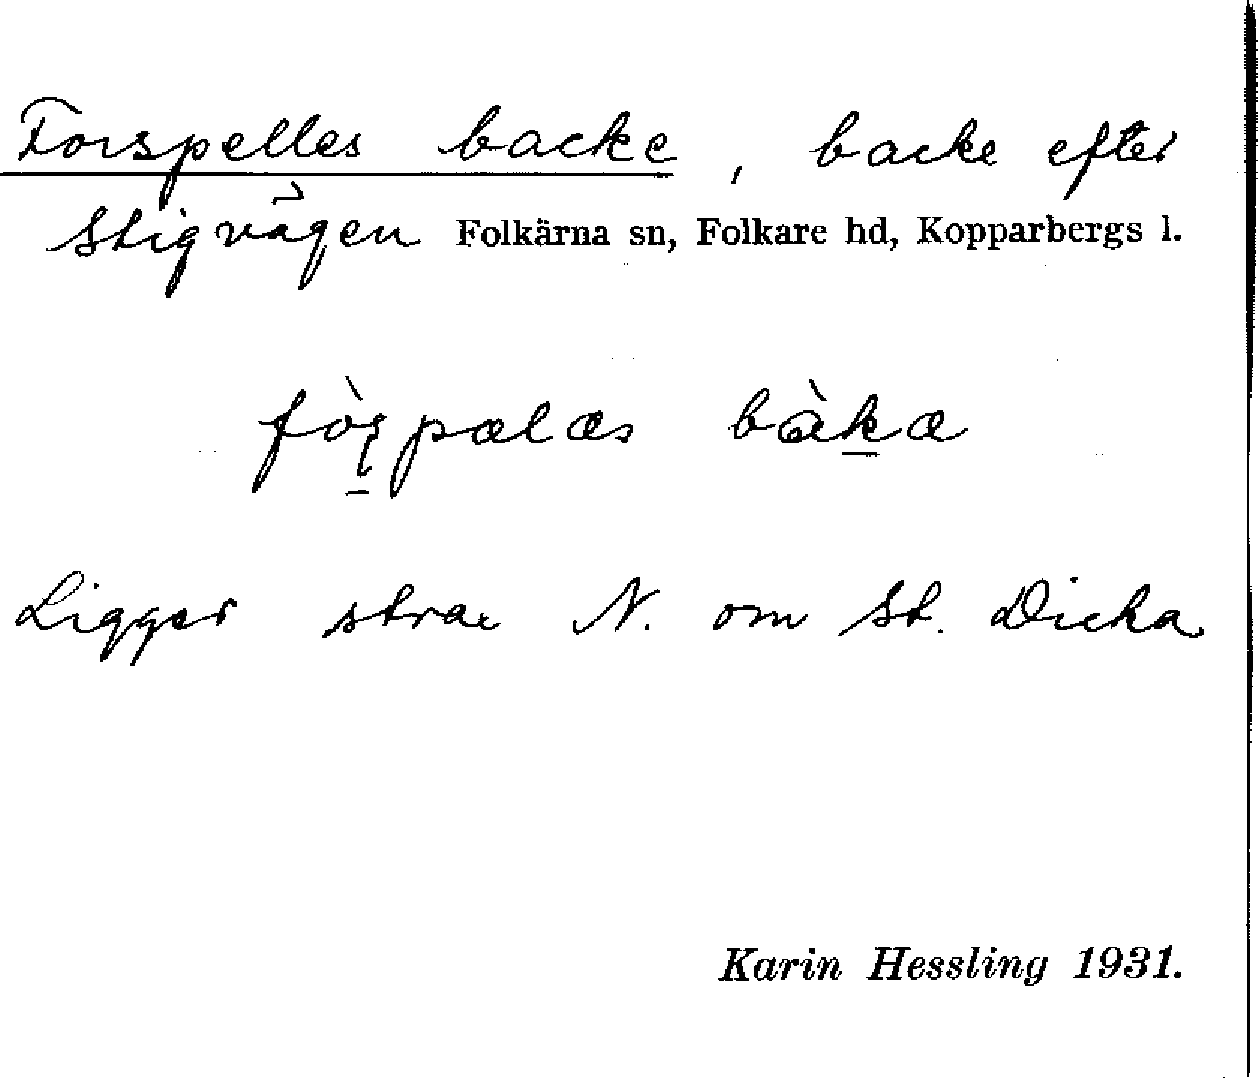 Forspelles backe, backe efter
stigvägen Folkärna sn, Folkare hd, Kopparbergs l.
bàkæ
Ligger strax N. om St. Dicka
Karin Hessling 1931.